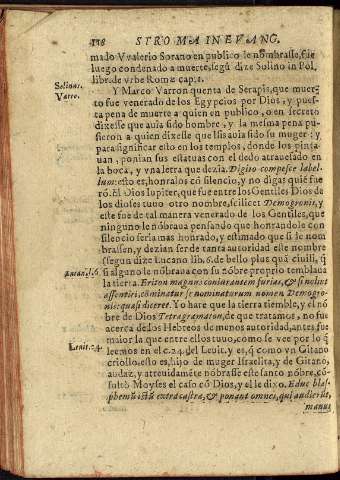 118 STROMA IN EVANG.
mado Vvalerio Sorano en publico le nombrasse, fue
luego condenado a muerte, segũ dize Solino in Pol.
Solinus. libr. de vrbe Romæ cap. 1.
Varro. Y Marco Varron quenta de Serapis, que muer-
to fue venerado de los Egypcios por Dios, y pues-
ta pena de muerte a quien en publico, o en secreto
dixesse que auia sido hombre, y la mesma pena pu-
sieron a quien dixesse que Isis auia sido su muger: y
para significar esto en los templos, donde los pinta-
uan, ponian sus estatuas con el dedo atrauesado en
la boca, y vna letra que dezia. Digito compesce label-
lum: esto es, honralos cō silencio, y no digas quiē fue
rō. El Dios Iupiter, que fue entre los Gentiles Dios de
los dioses tuuo otro nombre, scilicet Demogronis, y
este fue de tal manera venerado de los Gentiles, que
ninguno le nōbraua pensando que honrandole con
silencio seria mas honrado, y estimado que si le nom
brassen, y dezian ser de tanta autoridad este nombre
(segun dize Lucano lib. 6. de bello plus quā ciuili, q̄
Lucan. l. 6. si alguno le nōbraua con su nōbre proprio temblaua
la tierra. Eriton magnus coniurantem furias, & si nolūt
assentiri, cōminatur se nominaturum nomen Demogro-
nis: quasi diceret. Yo hare que la tierra tiemble, y el nō
bre de Dios Tetragramaton, de que tratamos, no fue
acerca de los Hebreos de menos autoridad, antes fue
maior la que entre ellos tuuo, como se vee por lo q̄
Leuit. 24. leemos en el c. 24. del Leuit. y es, q̄ como vn Gitano
criollo, esto es, hijo de muger Israelita, y de Gitano,
audaz, y atreuidamēte nōbrasse este santo nōbre, cō-
sultò Moyses el caso cō Dios, y el le dixo. Educ blas-
phemū istū extra castra, & ponant omnes, qui audierūt,
manus